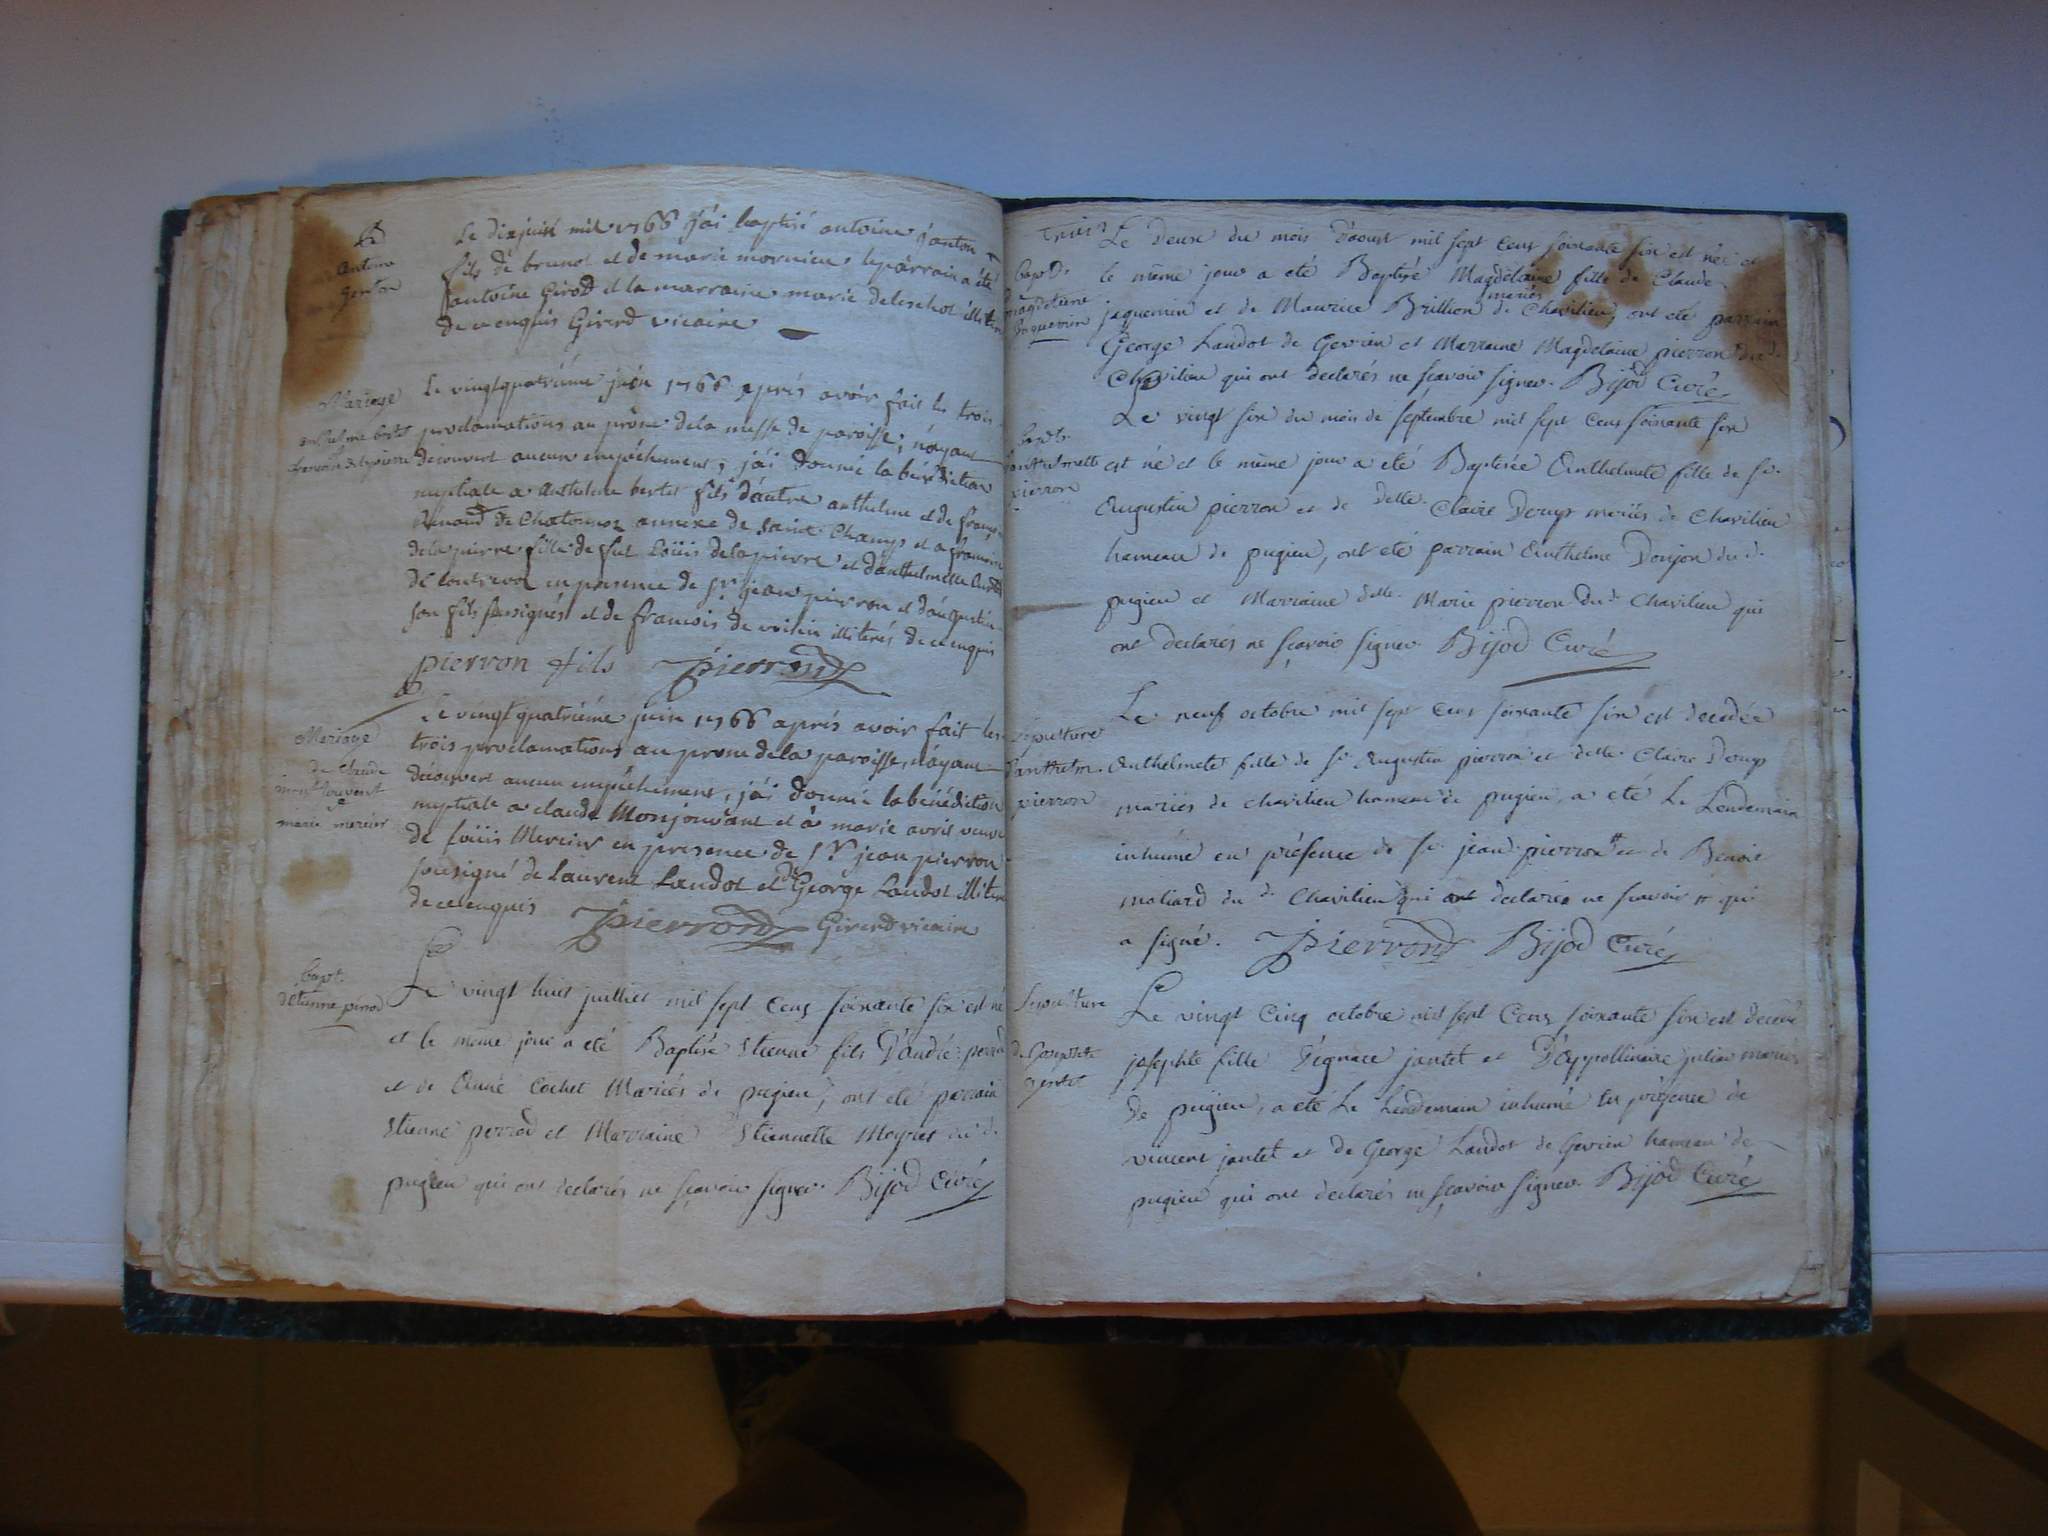 B
antoine
jenton
Le dix juin mil 1766 j'ai baptisé antoine janton
fils de brunot et de marie mornieu le parrain a été
antoine Girod et la marraine marie illiteré
de ce enquis Girerd vicaire
Mariage
anthelme bertet
francoise delapierre
Le vingtquatriéme juin 1766 aprés avoir fait les trois
proclamations au prône de la messe de paroisse; n'ayant
découvert aucun empéchement, j'ai donné la bénédiction
nuptiale a anthelme bertet fils d'autre anthelme et de franç.
Renaud de Chatonnoz annexe de saint Champ et a francoise
delapierre fille de fut Loüis delapierre et d'anthelmette
de Contrevoz en presence de Sr. jean pierron et d'augustin
son fils soussignés et de francois de illiterés de ce enquis
pierron fils Pierron
Mariage
de Claude
montjouvent
&
marie mercier
Le vingt quatriéme juin 1766 aprés avoir fait les
trois proclamations au prone de la paroisse, n'ayant
découvert aucun empéchement, j'ai donné la bénédiction
nuptiale a claude Monjouvant et a marie avril veuve
de Loüis Mercier en presence de Sr. jean pierron
sousigné de Laurent Landot et de George Landot illiteré
de ce enquis Pierron Girerd vicaire
bapt.
d'Etienne perrod
Le vingt huit juillet mil sept Cens soixante six est né
et le même jour a eté Baptisé Etienne fils D'andré perrod
et de Anne Cochet Mariés de pugieu, ont eté parrain
Etienne perrod et Marraine Etiennette Meyret du d.
pugieu qui ont declarés ne sçavoir signer. Bijod Curé
bapt.
magdelaine
jaquemin
Le deux du mois d'aoust mil sept Cens soixante six est née et
le même jour a eté Baptisé Magdelaine fille de Claude
mariés
jaquemin et de Maurice Brillion de Chavilieu, ont eté parrain
George Landot de Gevrin et Marraine Magdelaine pierron du d.
Chavilieu qui ont declarés ne sçavoir signer. Bijod Curé
bapt.
d'anthelmette
pierron
Le vingt six du mois de septembre mil sept Cens soixante six
est né et le même jour a eté Baptisée Anthelmete fille de sr.
Augustin pierron et de delle. Claire Derup mariés de Chavilieu
hameau de pugieu, ont eté parrain Anthelme Donjon du d.
pugieu et Marraine delle. Marie pierron du d. Chavilieu qui
ont declarés ne sçavoir signer Bijod Curé
sepulture
d'anthelm.
pierron
Le neuf octobre mil sept Cens soixante six est decedée
Anthelmete fille de sr. Augustin pierron et delle. Claire Derup
mariés de chavilieu hameau de pugieu, a eté Le Lendemain
inhumé en présence de sr. jean pierron # et de Benoit
moliard du d. Chavilieu qui ont declarés ne scavoir # qui
a signé. Pierron Bijod Curé
sepulture
de josephte
jentet
Le vingt Cinq octobre mil sept Cens soixante six est decedé
josephte fille d'ignace jantet et D'appollinaire julian mariés
De pugieu, a eté Le Lendemain inhumé en présence de
vincent jantet et de George Landot de Gevrin hameau de
pugieu qui ont declarés ne sçavoir signer Bijod Curé